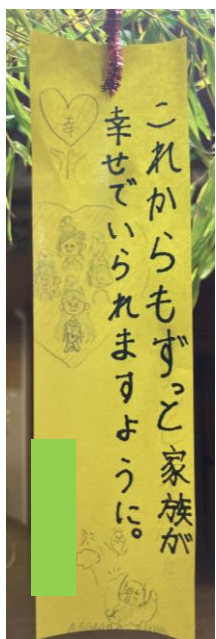 これからもずっと家族が
幸せでいられますように。
幸